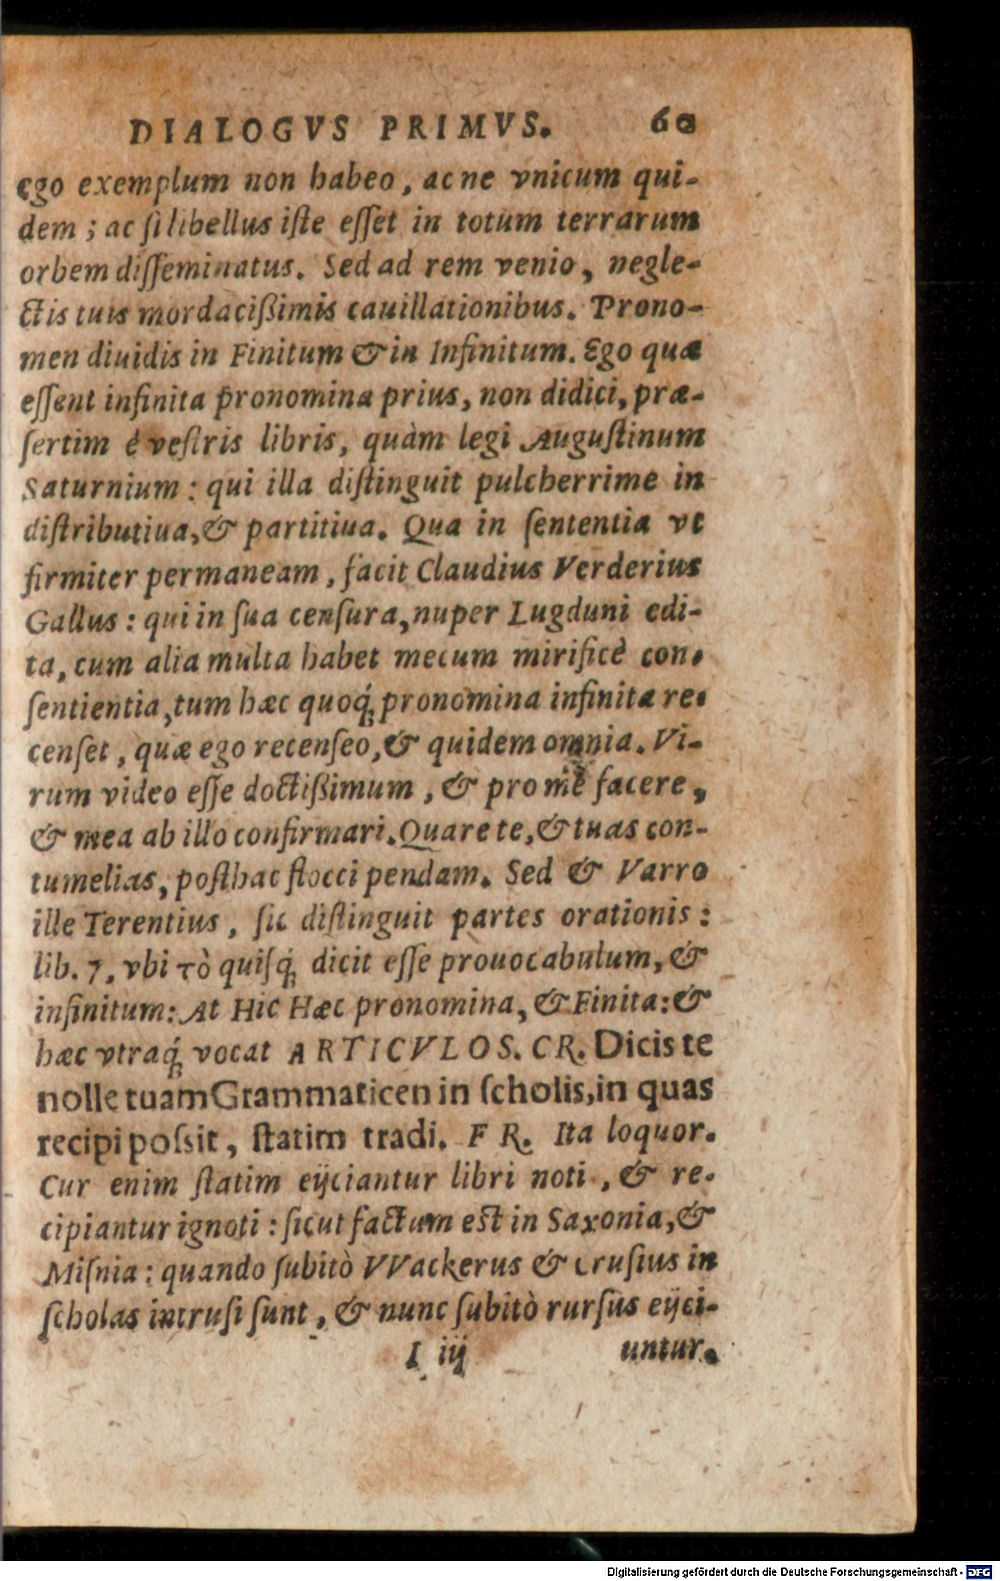 DIALOGVS PRIMVS. 60
Ego exemplum non habeo, ac ne vnicum qui-
dem; ac si libellus iste esset in totum terrarum
orbem disseminatus. Sed ad rem venio, negle-
ctis tuis mordacißimis cauillationibus. Prono-
men diuidis in Finitum & in Infinitum. Ego quæ
essent infinita pronomina prius, non didici, præ-
sertim é vestris libris, quàm legi Augustinum
Saturnium: qui illa distinguit pulcherrime in
distributiua, & partitiua. Qua in sententia vt
firmiter permaneam, facit Claudius Verderius
Gallus: qui in sua censura, nuper Lugduni edi-
ta, cum alia multa habet mecum mirificè con-
sentientia, tum hæc quoq́; pronomina infinita re-
censet, quæ ego recenseo, & quidem omnia. Vi-
rum video esse doctißimum, & pro me facere,
& mea ab illo confirmari. Quare te, & tuas con-
tumelias, posthac flocci pendam. Sed & Varro
ille Terentius, sic distinguit partes orationis:
lib. 7, vbi τὸ quisq́; dicit esse prouocabulum, &
infinitum: At Hic Hæc pronomina, & Finita: &
hæc vtraq́; vocat ARTICVLOS. CR. Dicis te
nolle tuam Grammaticen in scholis, in quas
recipi possit, statim tradi. FR. Ita loquor.
Cur enim statim eijciantur libri noti, & re-
cipiantur ignoti: sicut factum est in Saxonia, &
Misnia: quando subitò VVackerus & Crusius in
scholas intrusi sunt, & nunc subitò rursus eijci-
I iij untur.
Digitalisierung gefördert durch die Deutsche Forschungsgemeinschaft - DFG